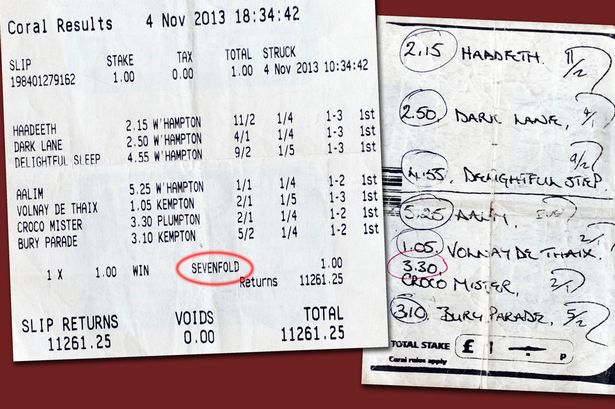 Coral Results 4 Nov 2013 18:34:42
SLIP STAKE TAX TOTAL STRUCK
198401279162 1.00 0.00 1.00 4 Nov 2013 10:34:42
HAADEETH 2.15 W'HAMPTON 11/2 1/4 1-3 1st
DARK LANE 2.50 W'HAMPTON 4/1 1/4 1-3 1st
DELIGHTFUL SLEEP 4.55 W'HAMPTON 9/2 1/5 1-3 1st
AALIM 5.25 W'HAMPTON 1/1 1/4 1-2 1st
VOLNAY DE THAIX 1.05 KEMPTON 2/1 1/5 1-3 1st
CROCO MISTER 3.30 PLUMPTON 2/1 1/4 1-2 1st
BURY PARADE 3.10 KEMPTON 5/2 1/4 1-2 1st
1 X 1.00 WIN SEVENFOLD 1.00
Returns 11261.25
SLIP RETURNS VOIDS TOTAL
11261.25 0.00 11261.25
2.15 HAADFETH. 11/2
2.50 DARK LANE, 4/1
4.55 DELIGHTFUL STEP 9/2
5.25 AALIM
1.05 VOLNAY DE THAIX.
3.30 CROCO MISTER, 2/1
3.10. BURY PARADE, 5/2
TOTAL STAKE £ 1 - P
Coral rules apply